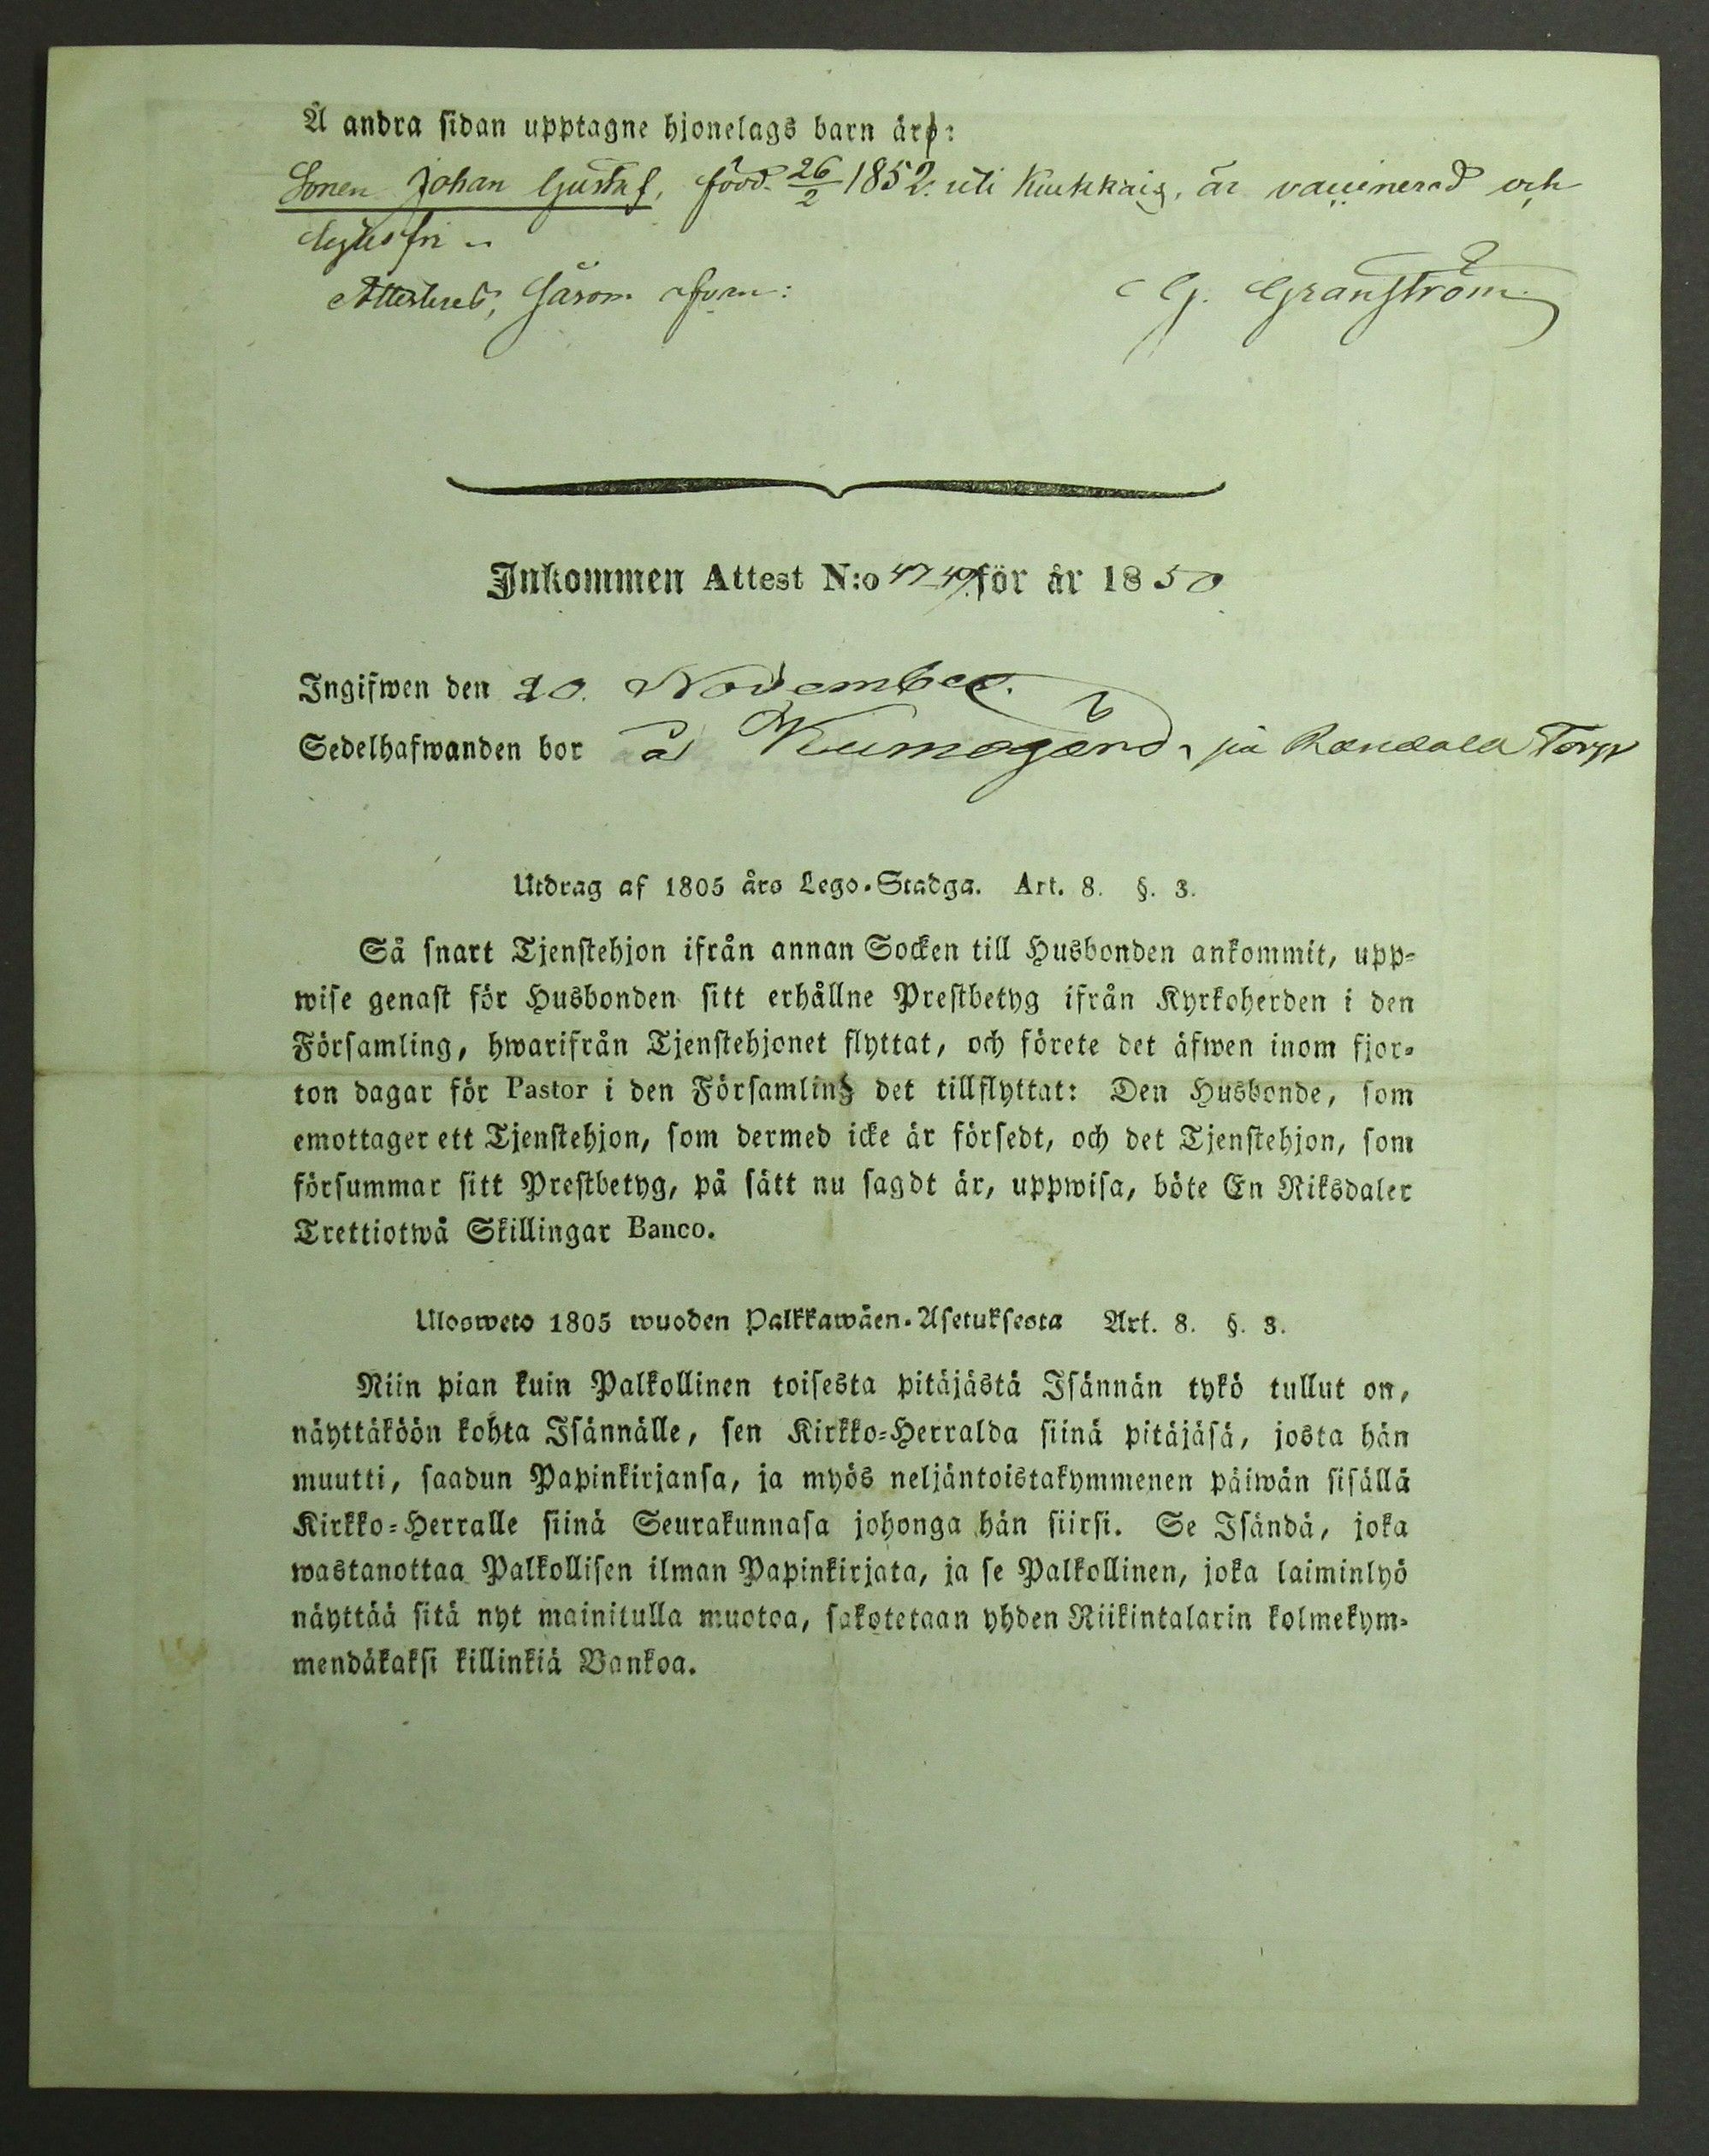 Å andra sidan upptagne hjonelags barn äro:
Sonen Johan Gustaf, född 26/2 1852. uti Kukkais, är vaccinerad och
lytesfri
Attesterat, såsom ofvan: G. Granström
Inkommen Attest N:o 47 för år 1850
Ingifwen den 20. November.
Sedelhafwanden bor å Kumogård, på Torp
Utdrag af 1805 års Lego-Stadga. Art. 8. §. 3.
Så snart Tjenstehjon ifrån annan Socken till Husbonden ankommit, upp-
wise genast för Husbonden sitt erhållne Prestbetyg ifrån Kyrkoherden i den
Församling, hwarifrån Tjenstehjonet flyttat, och förete det äfwen inom fjor-
ton dagar för Pastor i den Församling det tillflyttat: Den Husbonde, som
emottager ett Tjenstehjon, som dermed icke är försedt, och det Tjenstehjon, som
försummar sitt Prestbetyg, på sätt nu sagdt är, uppwisa, böte En Riksdaler
Trettiotwå Skillingar Banco.
Ulosweto 1805 wuoden Palkkawäen-Asetuksesta Art. 8. §. 3.
Niin pian kuin Palkollinen toisesta pitäjästä Isännän tykö tullut on,
näyttäköön kohta Isännälle, sen Kirkko-Herralda siinä pitäjäsä, josta hän
muutti, saadun Papinkirjansa, ja myös neljäntoistakymmenen päiwän sisällä
Kirkko-Herralle siinä Seurakunnasa johonga hän siirsi. Se Isändä, joka
wastanottaa Palkollisen ilman Papinkirjata, ja se Palkollinen, joka laiminlyö
näyttää sitä nyt mainitulla muotoa, sakotetaan yhden Riikintalarin kolmekym-
mendäkaksi killinkiä Bankoa.